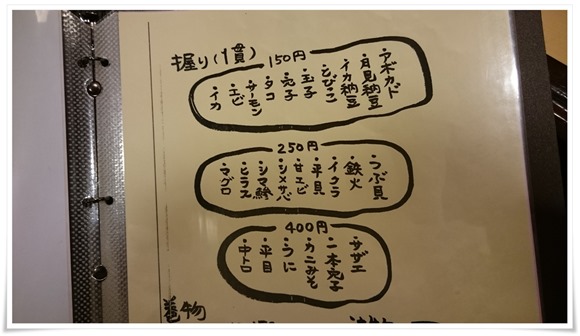 握り(1貫)
150円
・アボカド
・月見納豆
・イカ納豆
・とびっこ
・玉子
・穴子
・タコ
・サーモン
・エビ
・イカ
250円
・つぶ貝
・鉄火
・イクラ
・平貝
・甘エビ
・シメサバ
・シマ鯵
・ヒラス
・マグロ
400円
・サザエ
・一本穴子
・カニみそ
・うに
・平目
・中トロ
巻物